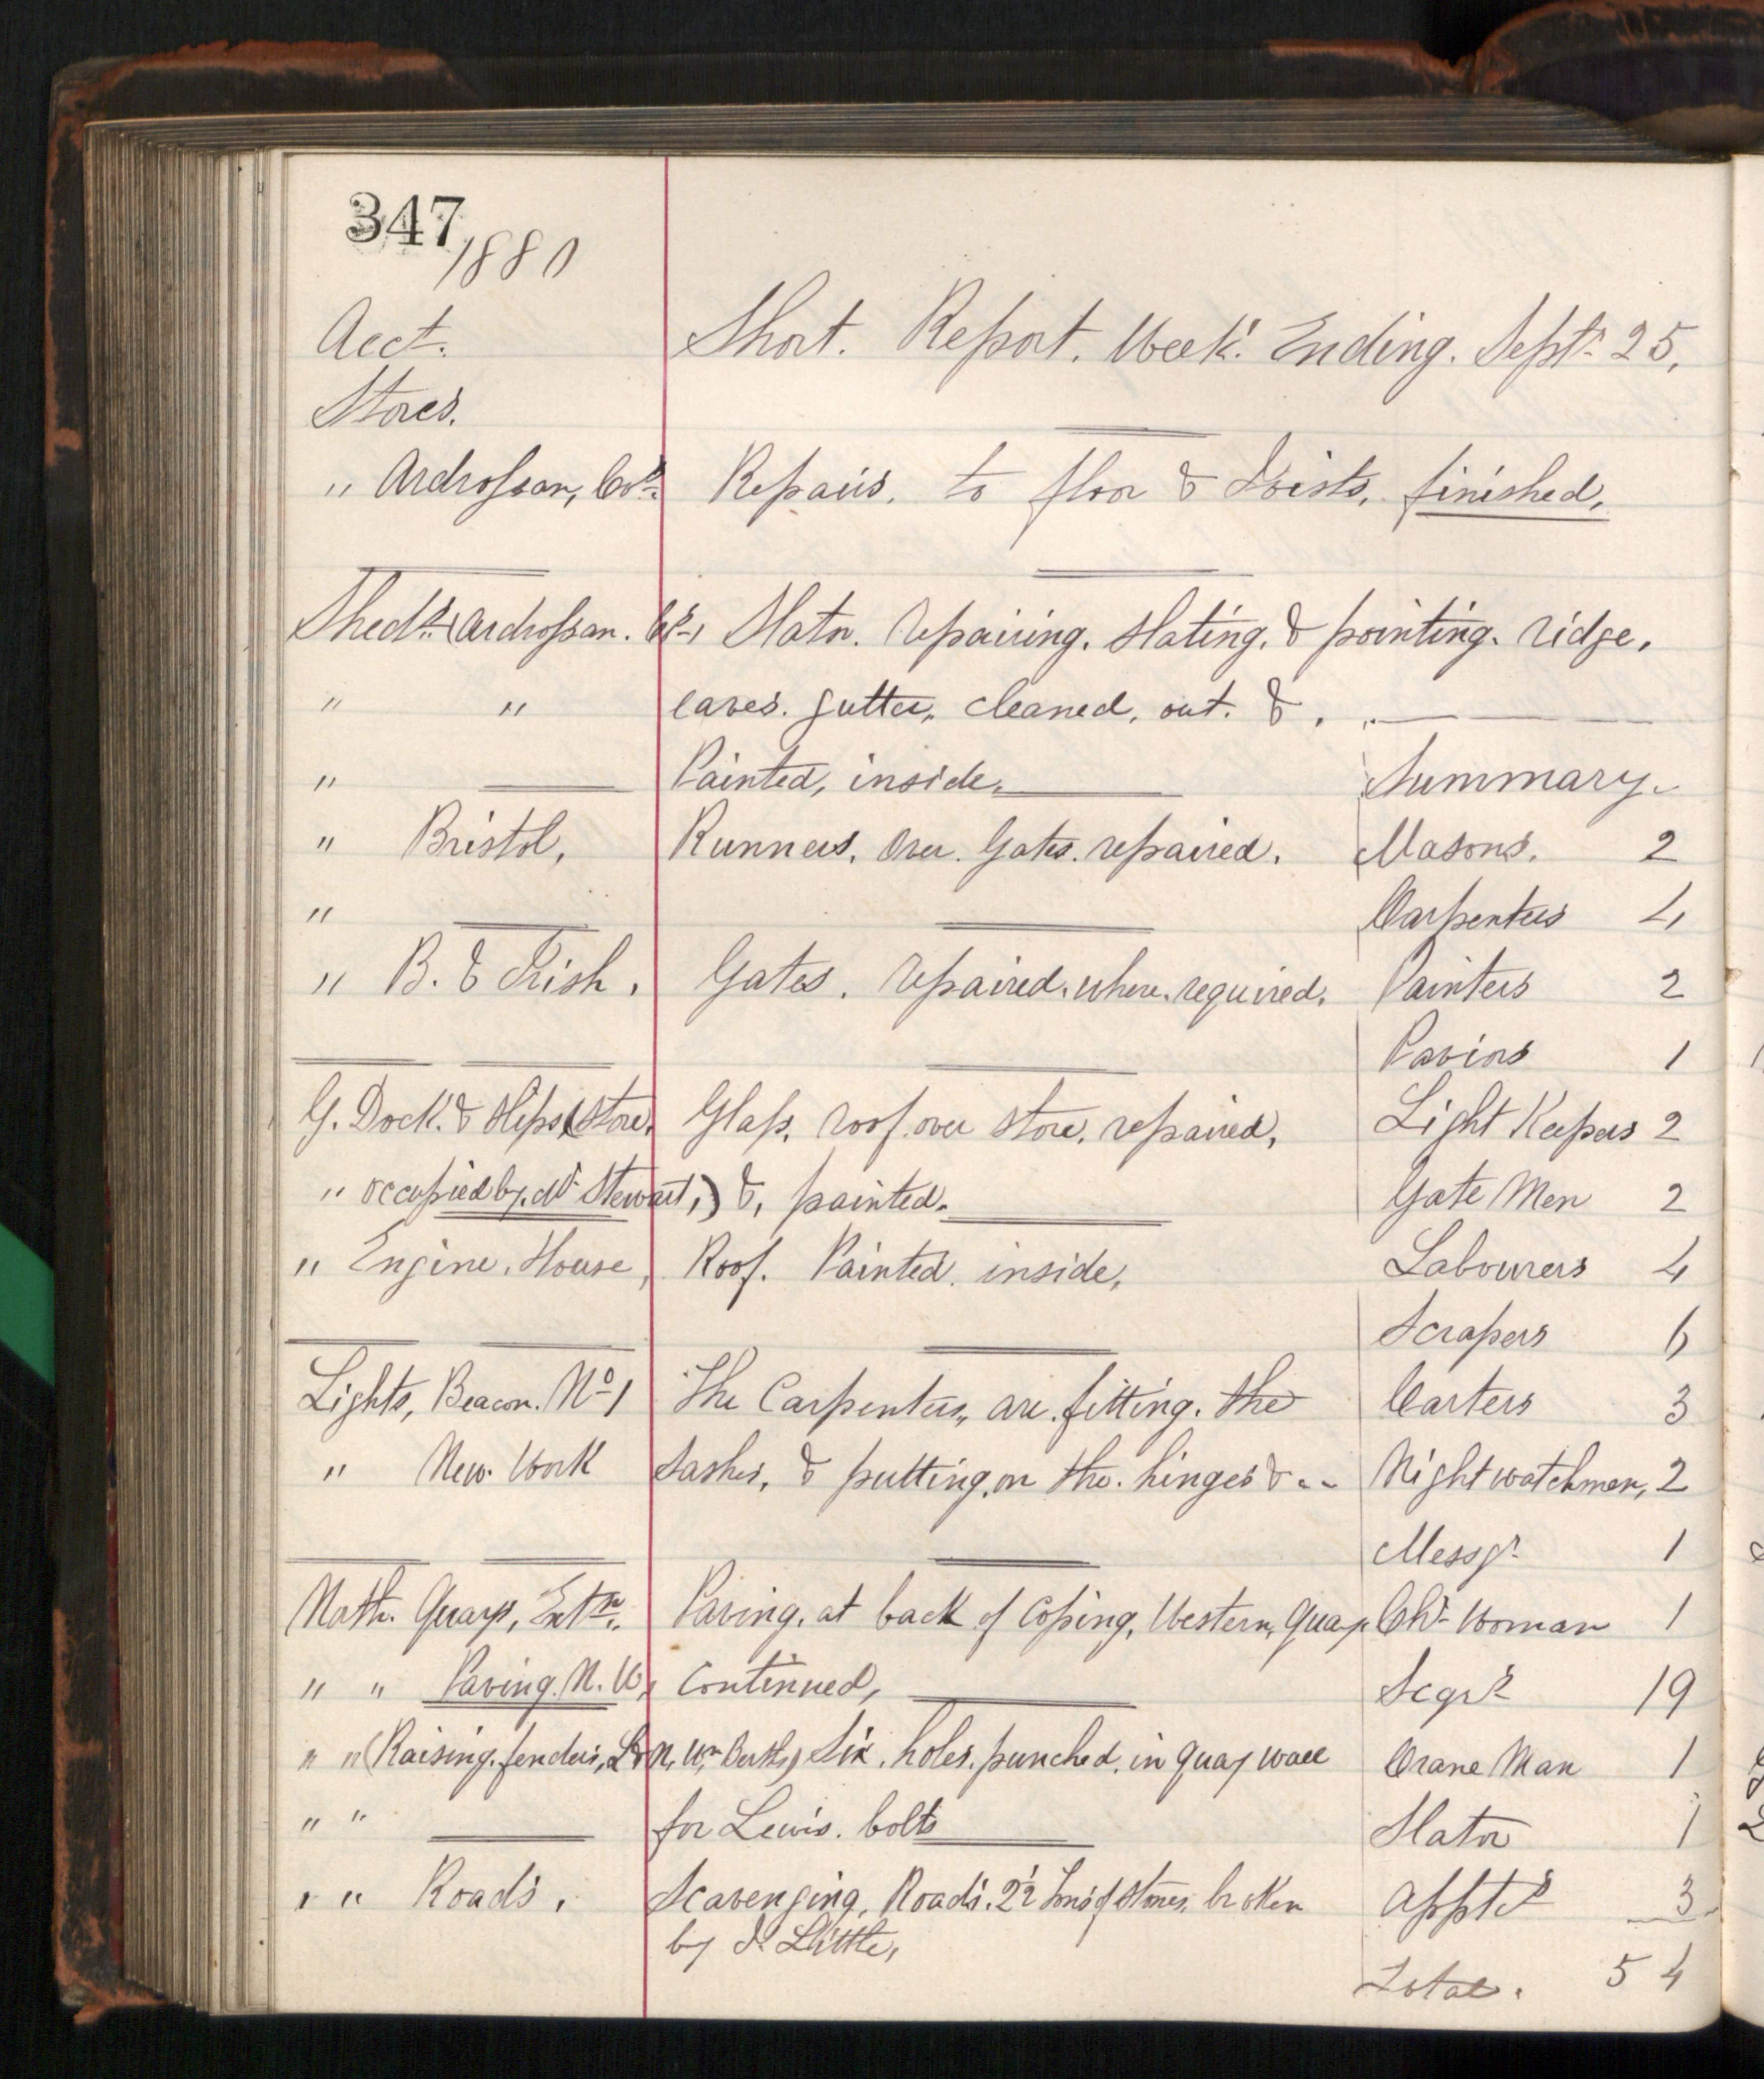 347
1880
Acct. Short. Report. Week. Ending. Septr. 25.
Stores.
" Ardrossan, Cos. Repairs. to floor & Joists, finished.
Sheds. (Ardrossan. Cos.) Slater. repairing. slating. & pointing. ridge.
" " eaves. gutter, cleaned, out. &.
" Painted, inside. Summary.
" Bristol, Runners. over. Gates. repaired. Masons. 2
" Carpenters 4
" B. & Irish. Gates. repaired. where. required. Painters 2
Paviors 1
G. Dock. & Slips (Store, Glass, roof. over store, repaired, Light Keepers 2
" occupied by. Mr Stewart,) &, painted. Gate Men 2
" Engine. House, Roof. Painted. inside, Labourers 4
Scrapers 6
Lights, Beacon. No 1 The Carpenters, are. fitting. the Carters 3
" New. Work Sashes, & putting. on the. hinges & -- Night watchmen, 2
Messgr. 1
North. Quays, Extn. Paving. at back of Coping, Western, Quay. Chr. Woman 1
" " Paving. N. W. Continued, Segrs 19
" " (Raising. fenders, N. Wn Berths) Six. holes. punched. in quay wall Crane Man 1
" " for Lewis. bolts Slater 1
" " Roads. Scavenging, Roads. 22 Tons of stones, broken Apptes 3
by Little,
Total. 54